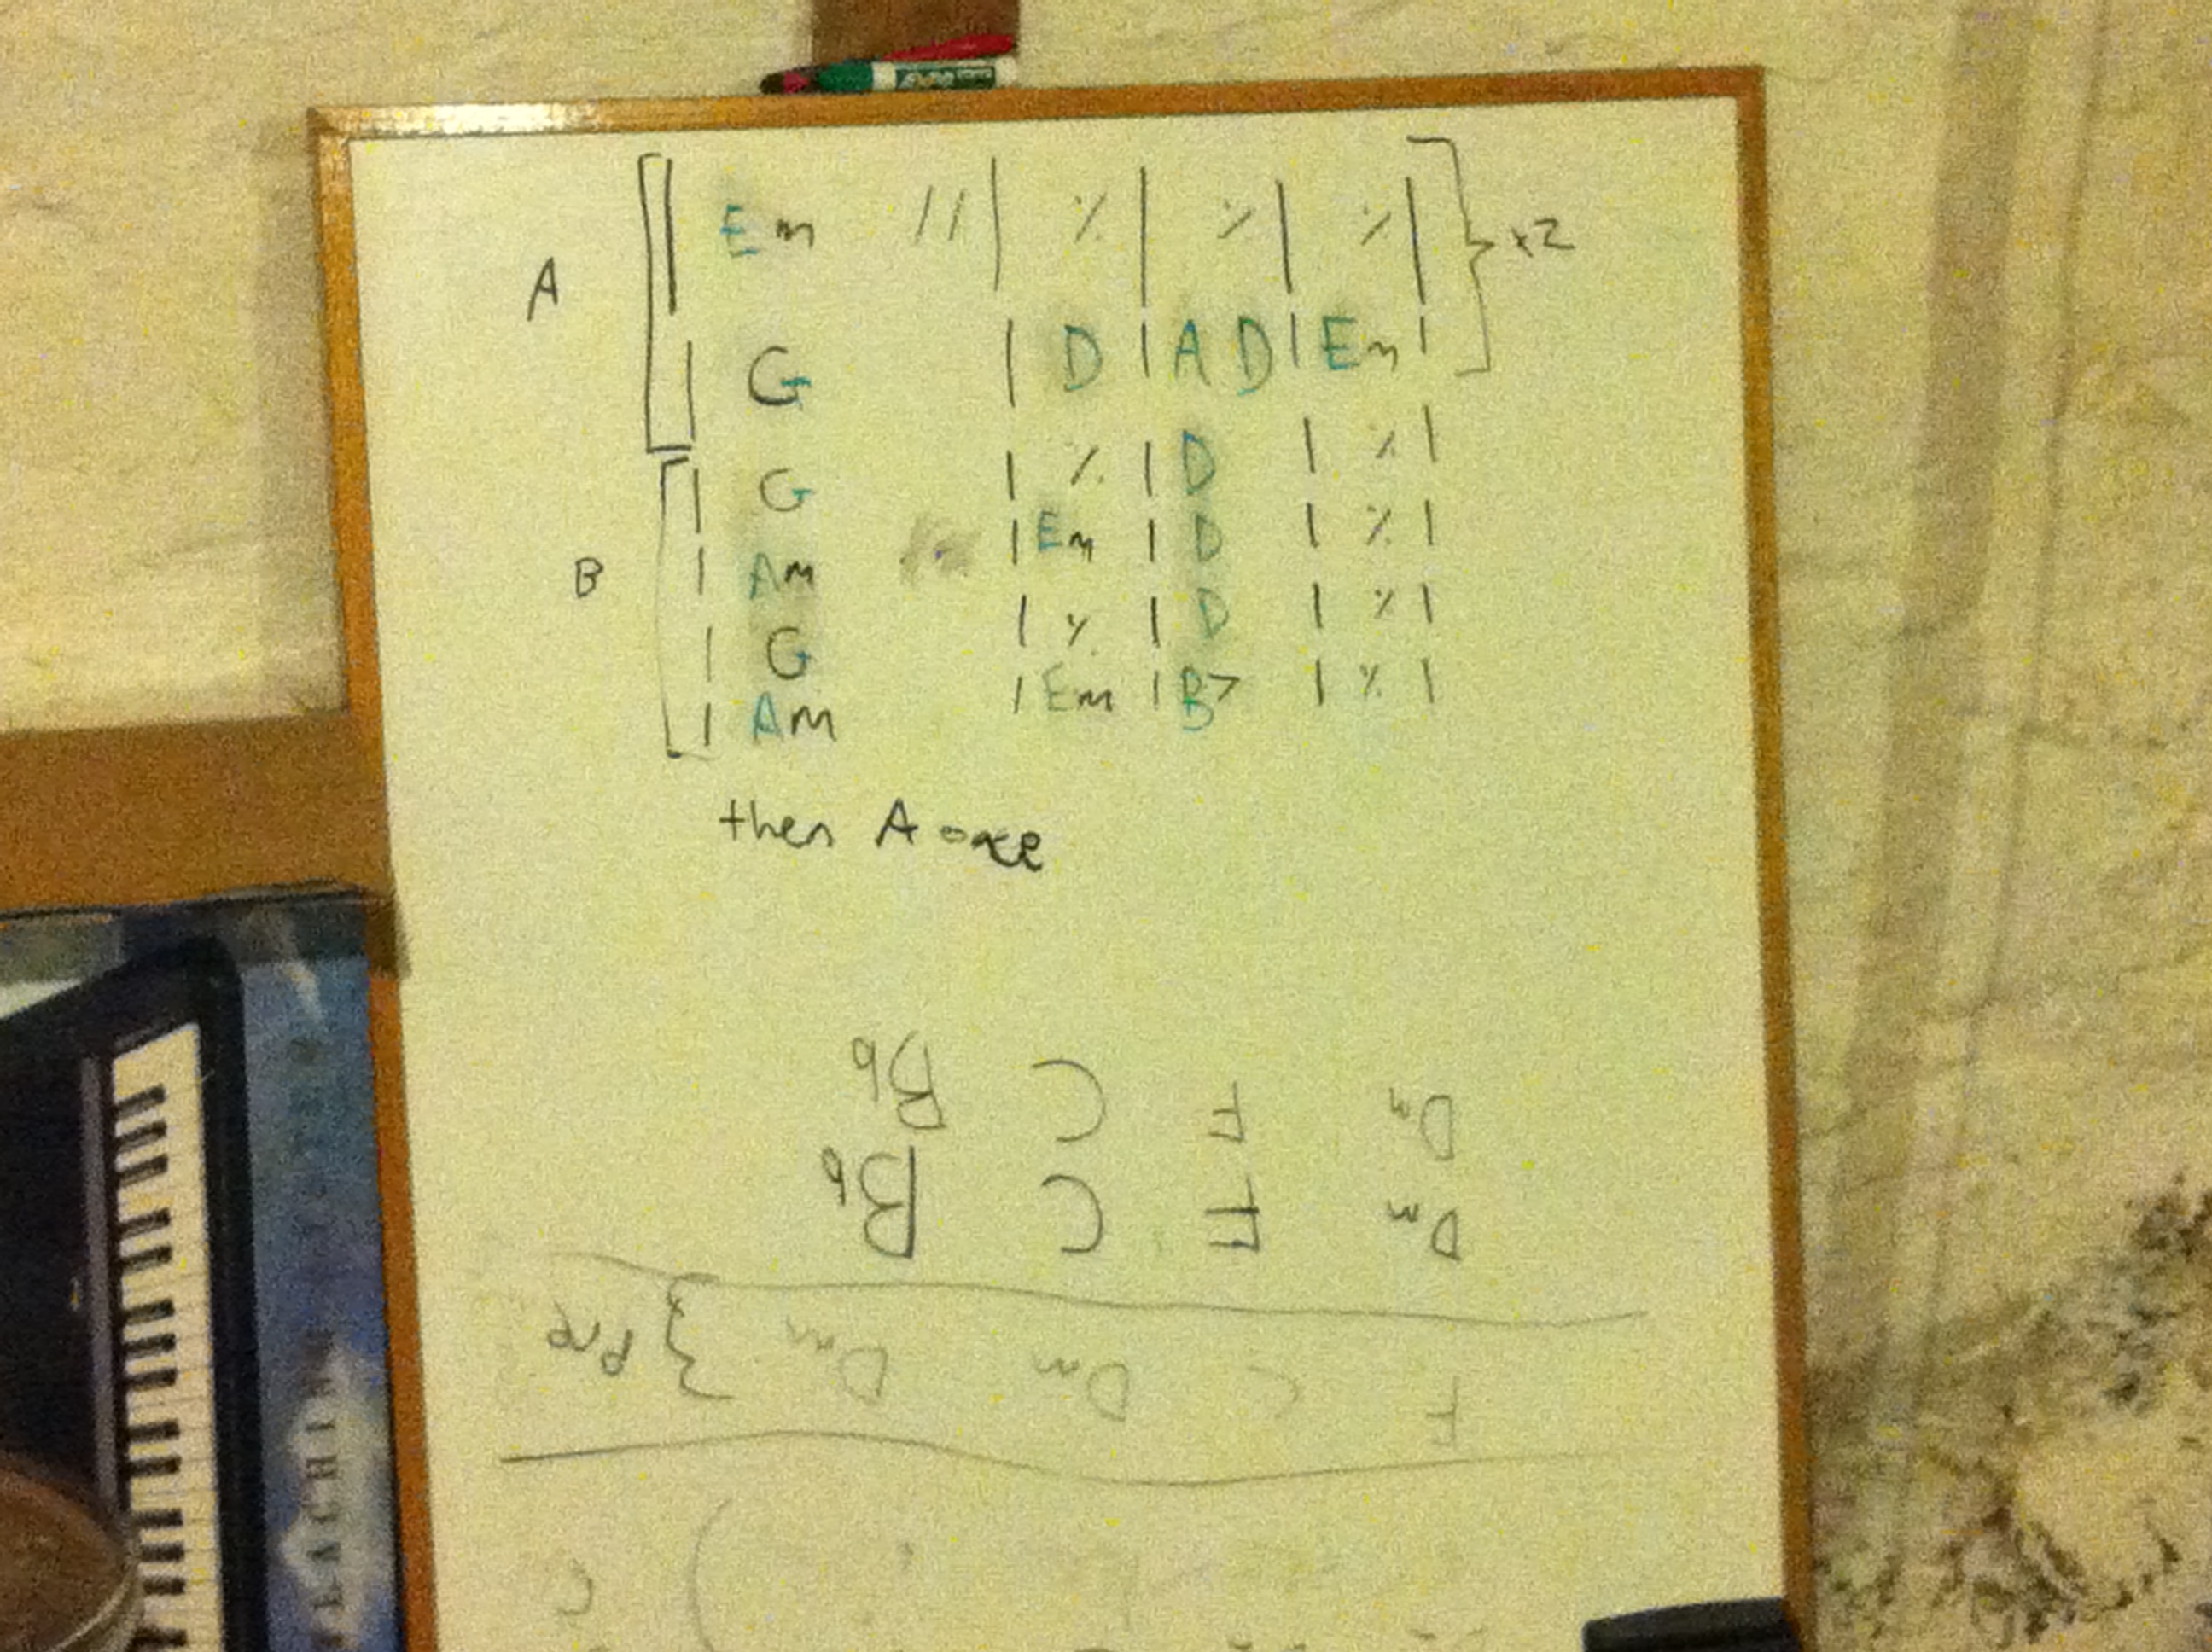 A
Em // | ٪ | ٪ | ٪ | } x2
G | D | A D | Em |
B
| G | ٪ | D | ٪ |
| Am | Em | D | ٪ |
| G | ٪ | D | ٪ |
| Am | Em | B7 | ٪ |
then A once
Dm F C Bb
Dm F C Bb
F C Dm Dm } Pre
C